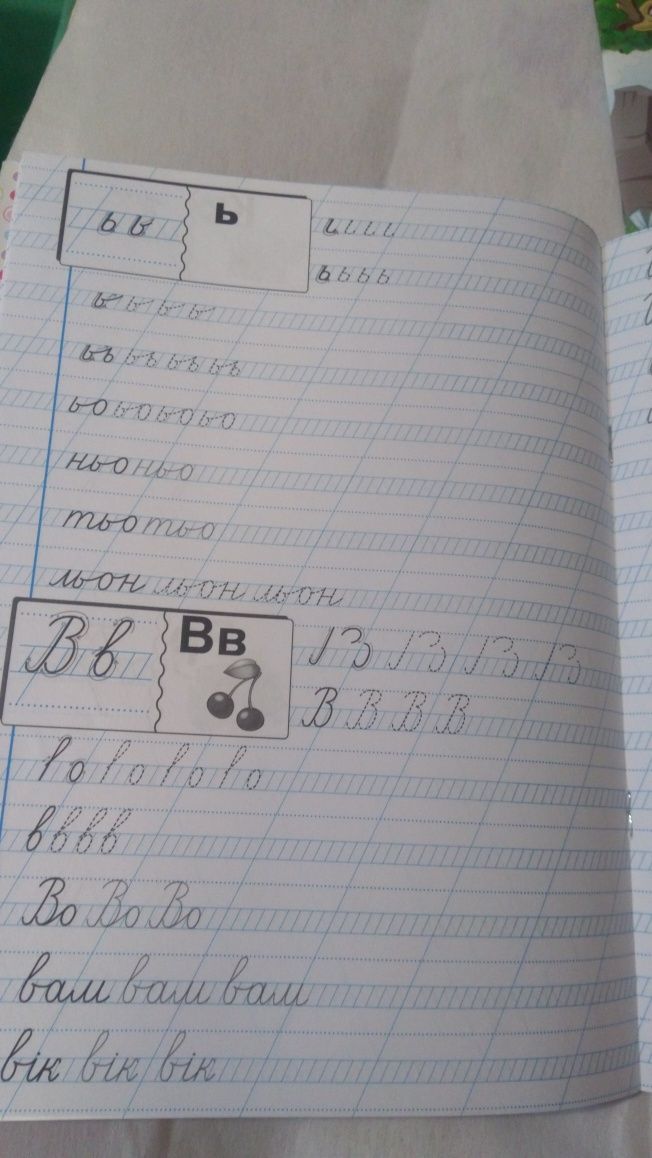 ь ь ь
ь ь ь ь
ь ь ь ь
ьь ьь ьь ьь
ьо ьо ьо ьо
ньо ньо
тьо тьо
льон льон льон
В в Вв
В В В В
о о о о
в в в в
Во Во Во
вам вам вам
вік вік вік